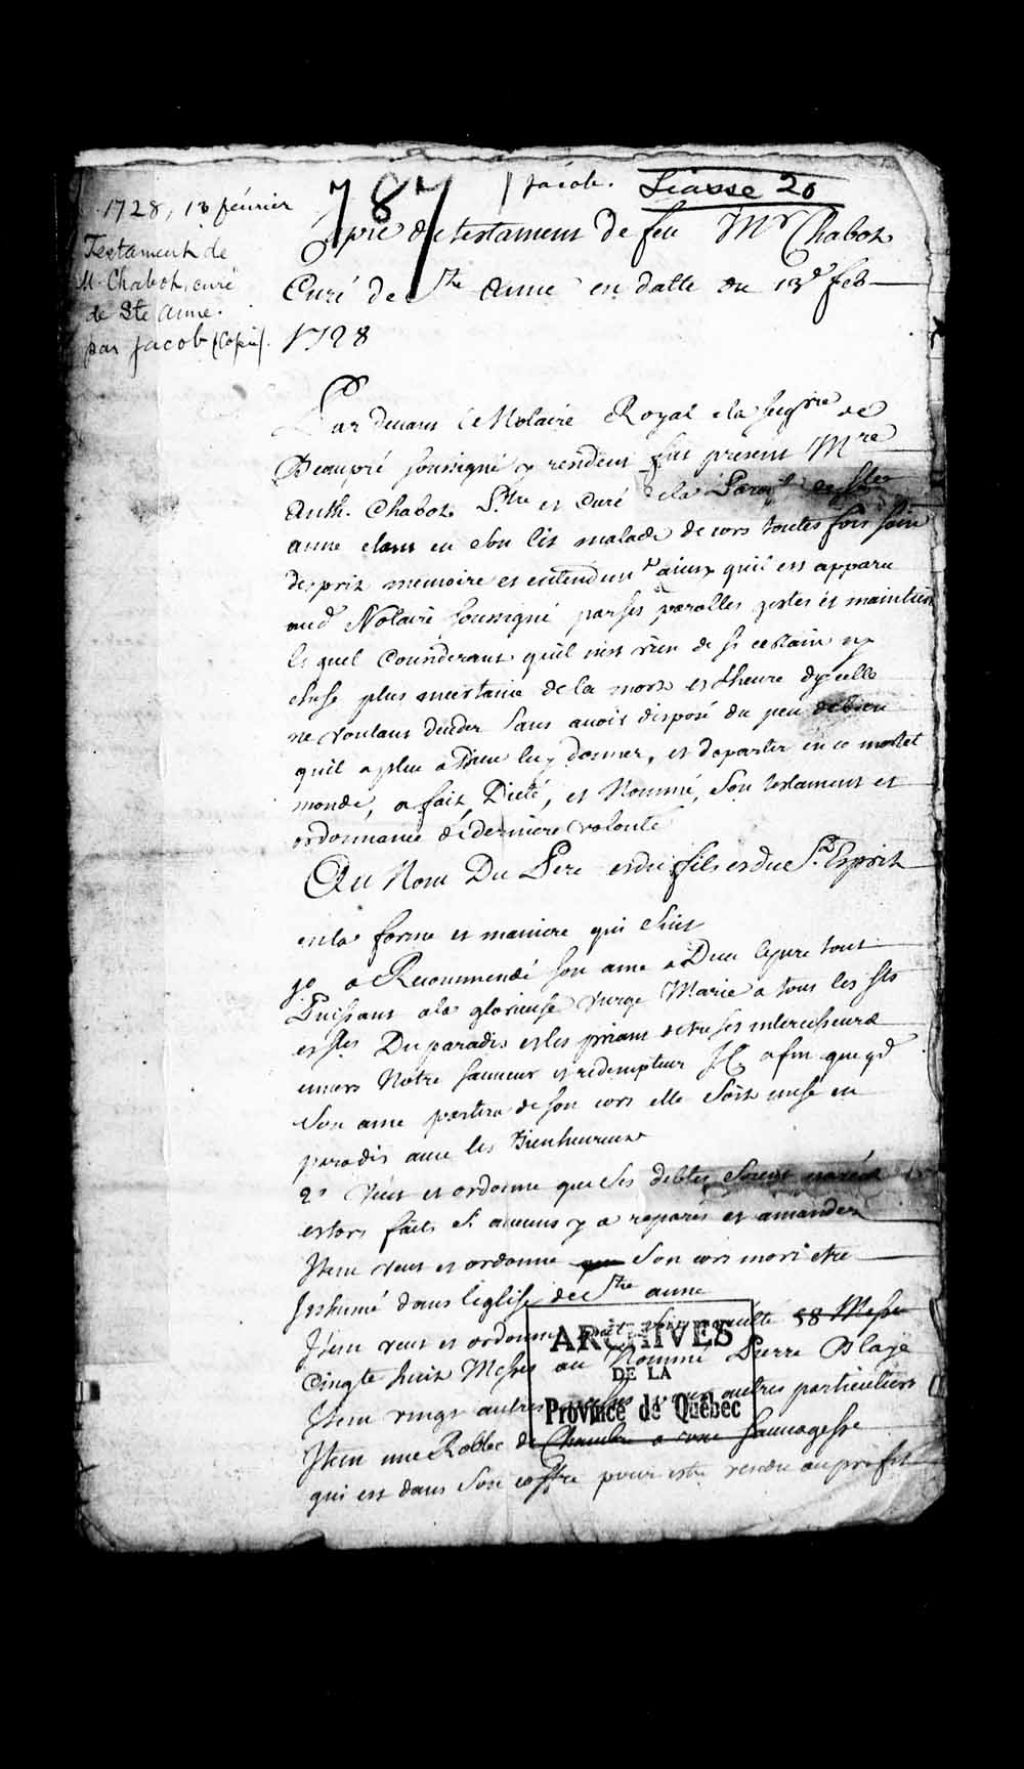 1728, 13 février
Testament de
M. Chabot, curé
de Ste Anne.
par Jacob (Copie).
787
Jacob. Liasse 20
Copie du testament de feu Mr Chabot
Curé de Ste Anne en datte du 13e feb
1728
Par devant le Notaire Royal de la seigrie de
Beaupré soussigné y residant fut present Mre
Anth. Chabot Ptre et Curé de la Paroisse de Ste
anne etant en son lit malade de cors toutes fois sain
desprit memoire et entendement ainsy quil est apparu
aud Notaire soussigné par ses parolles gestes et maintien
lequel Considerant quil nest rien de si certain ny
chose plus incertaine de la mort et Lheure dycelle
ne voulant deceder sans avoir disposé du peu de bien
quil a plu a Dieu luy donner, et departir en ce mortel
monde, a fait, Dicté, et Nommé, Son testament et
ordonnance de derniere volonté
Au Nom Du Pere et du fils et du St Esprit
en la forme et maniere qui Suit
1o a Recommendé son ame a Dieu le pere tout
Puissant a la glorieuse vierge Marie a tous les sts
et stes Du paradis et les priant detre ses intercesseurs
envers Notre sauveur et redempteur JC afin que qd
Son ame partira de son cors elle Soit mise en
paradis avec les Bienheureux
2o veut et ordonne que ses debtes soient payées
et tors faits si aucuns y a reparés et amandés
Item veut et ordonne que Son cors mort etre
Inhumé dans leglise de Ste anne
Item veut et ordonne 58 Messe
Cinqte huit Messes au Nommé Pierre Blaje
Item vingt autres autres particuliers
Item une Robbe de Chambre a une sauvagesse
qui est dans Son coffre pour estre vendu au profit
ARCHIVES
DE LA
Province de Québec